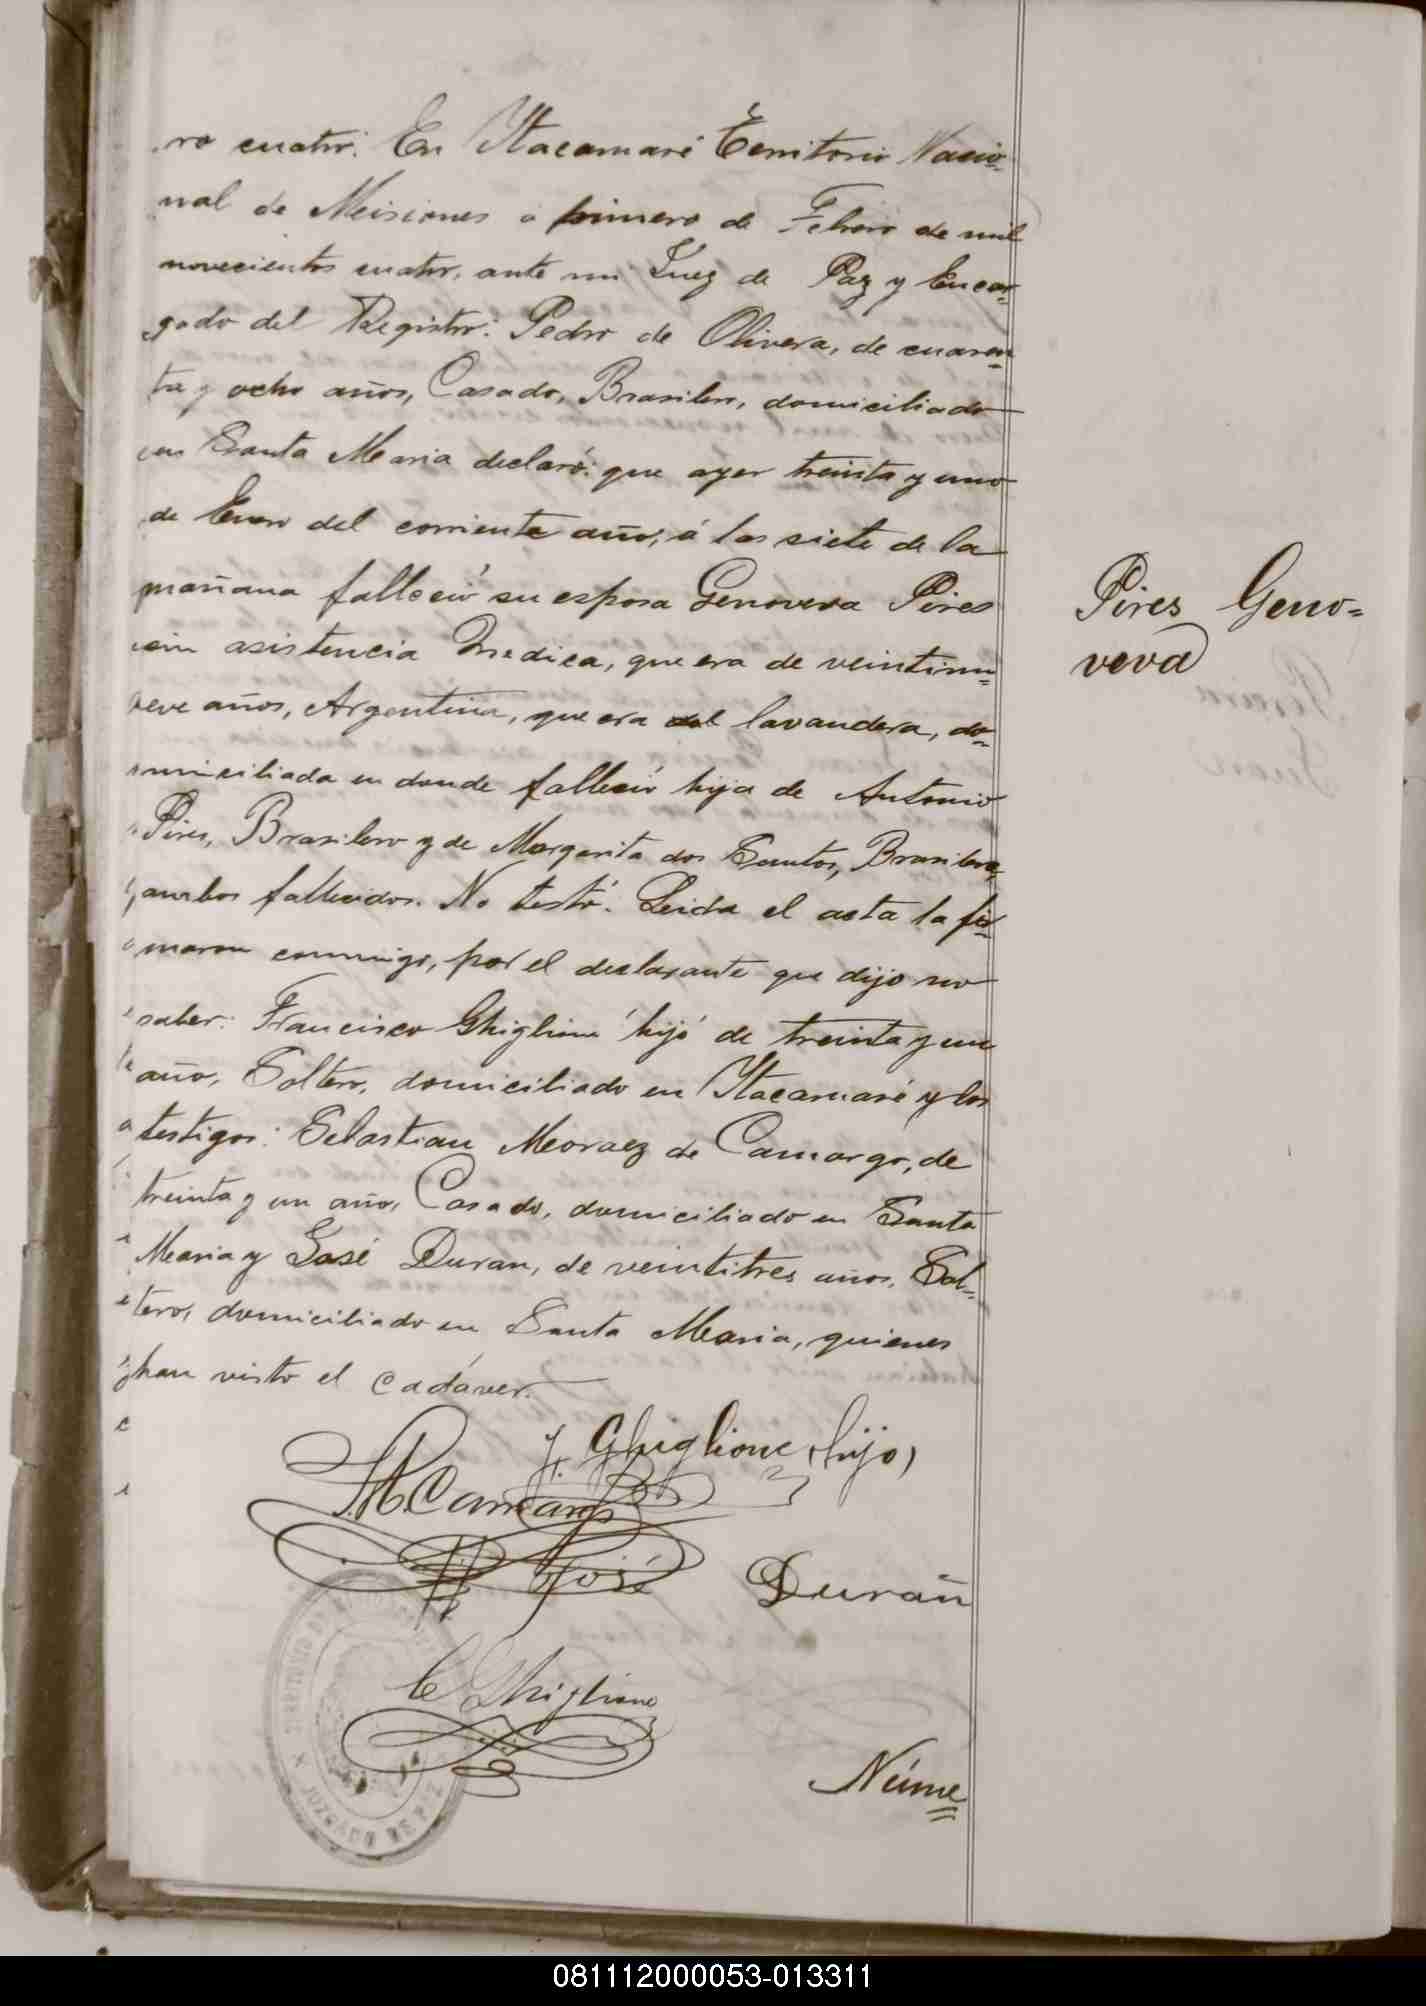 ro cuatro: En Itacaruaré Territorio Nacio=
nal de Misiones á primero de Febrero de mil
novecientos cuatro, ante mi Juez de Paz y Encar=
gado del Registro: Pedro de Olivera, de cuaren=
ta y ocho años, Casado, Brasilero, domiciliado
en Santa Maria declaró: que ayer treinta y uno
de Enero del corriente año, á las siete de la
mañana falleció su esposa Genoveva Pires
sin asistencia medica, que era de veintinu=
eve años, Argentina, que era lavandera, do=
miciliada en donde falleció hija de Antonio
Pires, Brasilero y de Margarita dos Santos, Brasilera,
ambos fallecidos. No testó. Leida el acta la fir=
maron conmigo, por el declarante que dijo no
saber: Francisco Ghiglione "hijo" de treinta y un
año, Soltero, domiciliado en Itacaruaré y los
testigos: Sebastian Moraez de Camargo, de
treinta y un año, Casado, domiciliado en Santa
Maria y José Duran, de veintitres años, Sol=
tero, domiciliado en Santa Maria, quienes
han visto el cadáver.
Pires Geno=
veva
F. Ghiglione (hijo)
Camargo
José Durán
C Ghiglione
TERRITORIO DE
JUZGADO DE PAZ
Núme
081112000053-013311